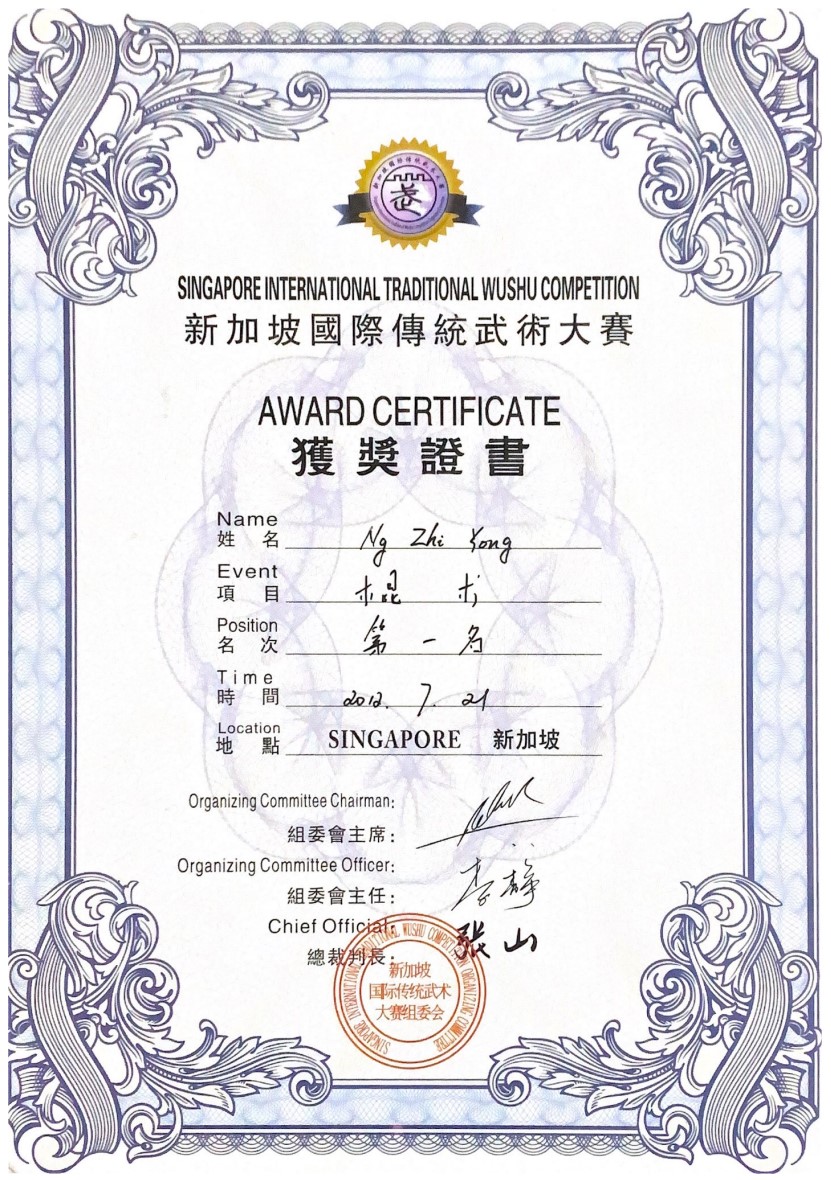 新加坡國際傳統武術大賽
SINGAPORE INTERNATIONAL TRADITIONAL WUSHU COMPETITION
新加坡國際傳統武術大賽
AWARD CERTIFICATE
獲獎證書
Name
姓 名 Ng Zhi Yong
Event
項 目 棍 术
Position
名 次 第 一 名
Time
時 間 2012. 7. 21
Location
地 點 SINGAPORE 新加坡
Organizing Committee Chairman:
組委會主席:
Organizing Committee Officer:
組委會主任: 李静
Chief Official:
總裁判長: 張山
SINGAPORE INTERNATIONAL TRADITIONAL WUSHU COMPETITION ORGANIZING COMMITTEE
新加坡
国际传统武术
大赛组委会